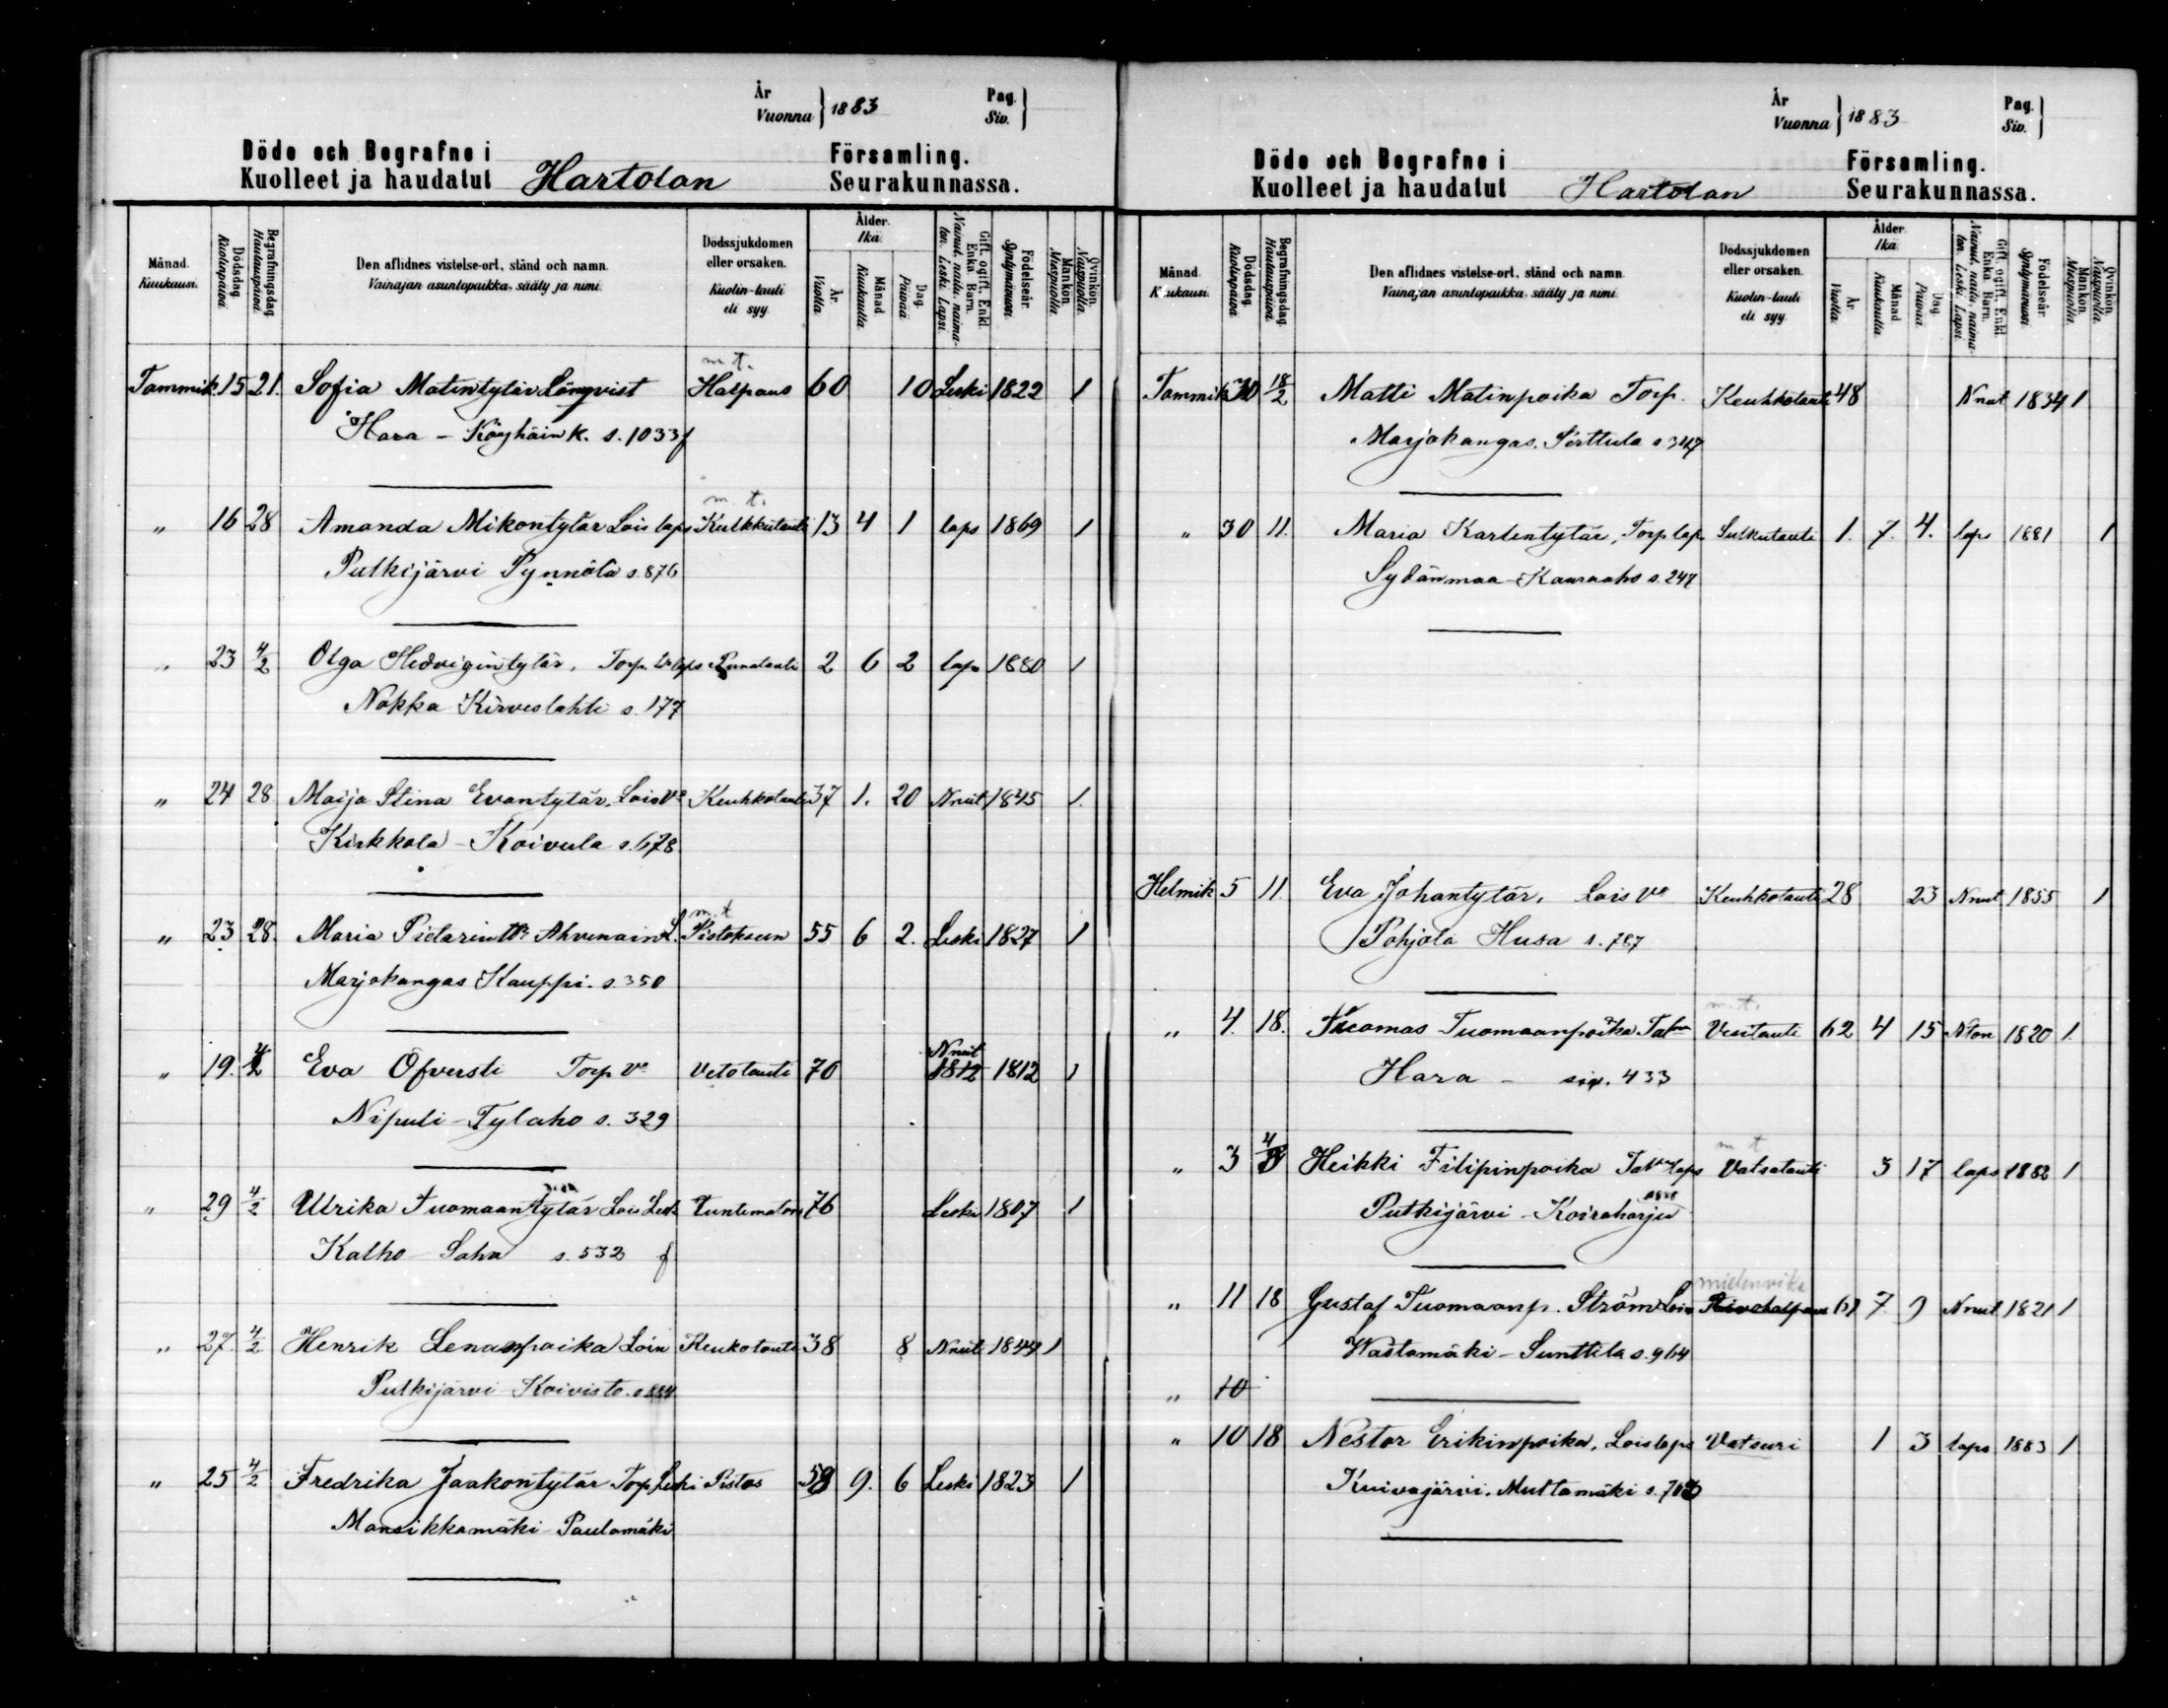 År
Vuonna } 1883
Pag.
Siv. }
Döde och Begrafne i
Kuolleet ja haudatut Hartolan
Församling.
Seurakunnassa.
Månad. Kuukausi.
Dödsdag. Kuolinpäivä
Begrafningsdag. Hautauspäivä
Den aflidnes vistelse-ort, stånd och namn.
Vainajan asuntopaikka, sääty ja nimi.
Dödssjukdomen eller orsaken.
Kuolin-tauti eli syy.
Ålder. Ikä.
År. Vuotta.
Månad. Kuukautta
Dag. Päivää
Gift, ogift, Enkl. Enka. Barn.
Nainut, naitu, naimaton. Leski. Lapsi.
Födelseår. Syntymävuosi
Mankön. Miespuolia.
Qvinkön. Naispuolia.
m.t.
Tammik. 15 21. Sofia Matintytär Lönqvist Halpaus 60 10 Leski 1822 1
Hara - Köyhäin k. s. 1033 f
m.t.
" 16 28 Amanda Mikontytär Lois laps Kulkkutauti 13 4 1 laps 1869 1
Putkijärvi Pynnölä s. 876
" 23 4/2 Olga Hedvigintytär, Torp. laps Punatauti 2 6 2 laps 1880 1
Nokka Kirveslahti s. 177
" 24 28 Maija Stina Evantytär, Lois Vo Keuhkotauti 37 1. 20 Nnut 1845 1.
Kirkkola - Koivula s. 678
m.t
" 23 28. Maria Pietarintr Ahvenain L. Pistoksen 55 6 2. Leski 1827 1
Marjokangas Kauppi. s. 350
" 19. 4/2 Eva Öfversti Torp. Vo Vetotauti 70 Nnut 1812 1812 1
Nipuli - Tylaho s. 329
" 29 4/2 Ulrika Tuomaantytär Lois Lesk Tuntematon 76 Leski 1807 1
Kalho - Saha s. 532 f
" 27. 4/2 Henrik Lenanpoika Loin Keukotauti 38 8 Nnut 1844 1
Putkijärvi Koivisto. s 884
" 25 4/2 Fredrika Jaakontytär Torp Leski Pistos 59 9. 6 Leski 1823 1
Mansikkamäki - Paulamäki
År
Vuonna } 1883
Pag.
Siv. }
Döde och Begrafne i
Kuolleet ja haudatut Hartolan
Församling.
Seurakunnassa.
Månad. Kuukausi.
Dödsdag. Kuolinpäivä
Begrafningsdag. Hautauspäivä
Den aflidnes vistelse-ort, stånd och namn.
Vainajan asuntopaikka, sääty ja nimi.
Dödssjukdomen eller orsaken.
Kuolin-tauti eli syy.
Ålder. Ikä.
År. Vuotta.
Månad. Kuukautta
Dag. Päivää
Gift, ogift, Enkl. Enka. Barn.
Nainut, naitu, naimaton. Leski. Lapsi.
Födelseår. Syntymävuosi
Mankön. Miespuolia.
Qvinkön. Naispuolia.
Tammik 30 18/2 Matti Matinpoika Torp. Keuhkotauti 48 Nnut 1834 1
Marjokangas. Perttula s. 347
" 30 11. Maria Karlentytär, Torp lap. Sulkutauti 1. 7. 4. laps 1881 1
Sydänmaa - Kauraaho s. 247
Helmik 5 11. Eva Johantytär. Lois Vo Keuhkotauti 28 23 Nnut 1855 1
Pohjola Husa s. 787
m.t.
" 4. 18. Tuomas Tuomaanpoika Vesitauti 62 4 15 Nton 1820 1.
Hara - siv. 433
m.t
" 3 4/3 Heikki Filipinpoika laps Vatsatauti 3 17 laps 1882 1
Putkijärvi - Koiraharju
mielenvika
" 11 18 Gustaf Tuomaanp. Ström Loin 61 7 9 Nnut 1821 1
Wastamäki - Sunttila s. 964
" 10
" 10 18 Nestor Erikinpoika, Lois laps Vatsuri 1 3 laps 1883 1
Kuivajärvi. Muttamäki s. 703